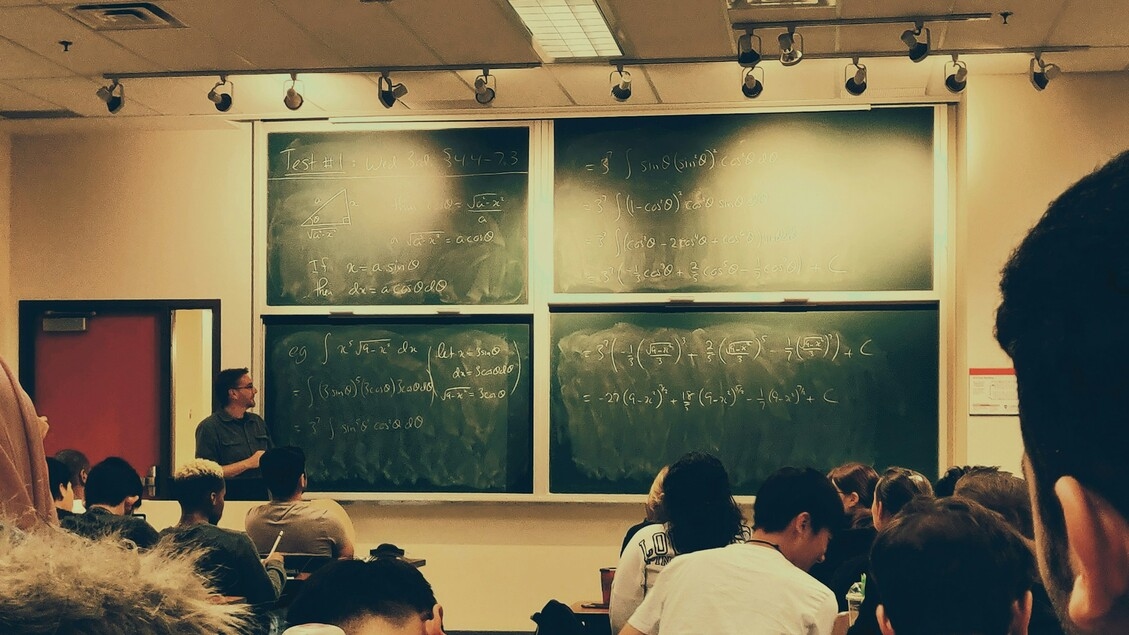 Test #1: Wed 3rd §4.4-7.3
a x
θ
√a²-x²
cosθ = √a²-x² / a
√a²-x² = a cosθ
If x = a sinθ
then dx = a cosθ dθ
eg ∫ x⁵ √9-x² dx (let x = 3sinθ
dx = 3cosθdθ
= ∫ (3sinθ)⁵(3cosθ)3cosθdθ √9-x² = 3cosθ)
= 3⁷ ∫ sin⁵θ cos²θ dθ
= 3⁷ ∫ sinθ(sin²θ)² cos²θ dθ
= 3⁷ ∫(1-cos²θ)² cos²θ sinθ dθ
= 3⁷ ∫(cos²θ - 2cos⁴θ + cos⁶θ) sinθ dθ
= 3⁷ (-1/3 cos³θ + 2/5 cos⁵θ - 1/7 cos⁷θ) + C
= 3⁷ (-1/3 (√9-x²/3)³ + 2/5 (√9-x²/3)⁵ - 1/7 (√9-x²/3)⁷) + C
= -27 (9-x²)^3/2 + 18/5 (9-x²)^5/2 - 1/7 (9-x²)^7/2 + C
LO